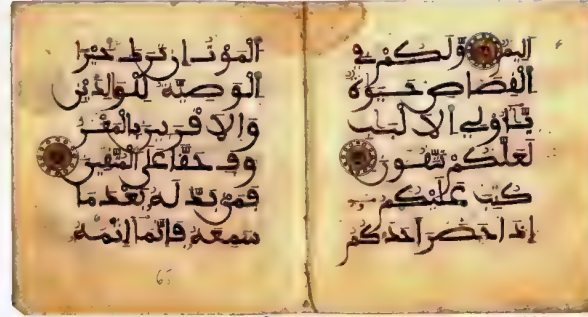 اليم ولكم في
القصاص حيوة
يأولي الالبب
لعلكم تتقون
كتب عليكم
إذا حضر أحدكم
الموت إن ترك خيرا
الوصية للولدين
والاقربين بالمعر
وف حقا على المتقين
فمن بدله بعد ما
سمعه فإنما إثمه